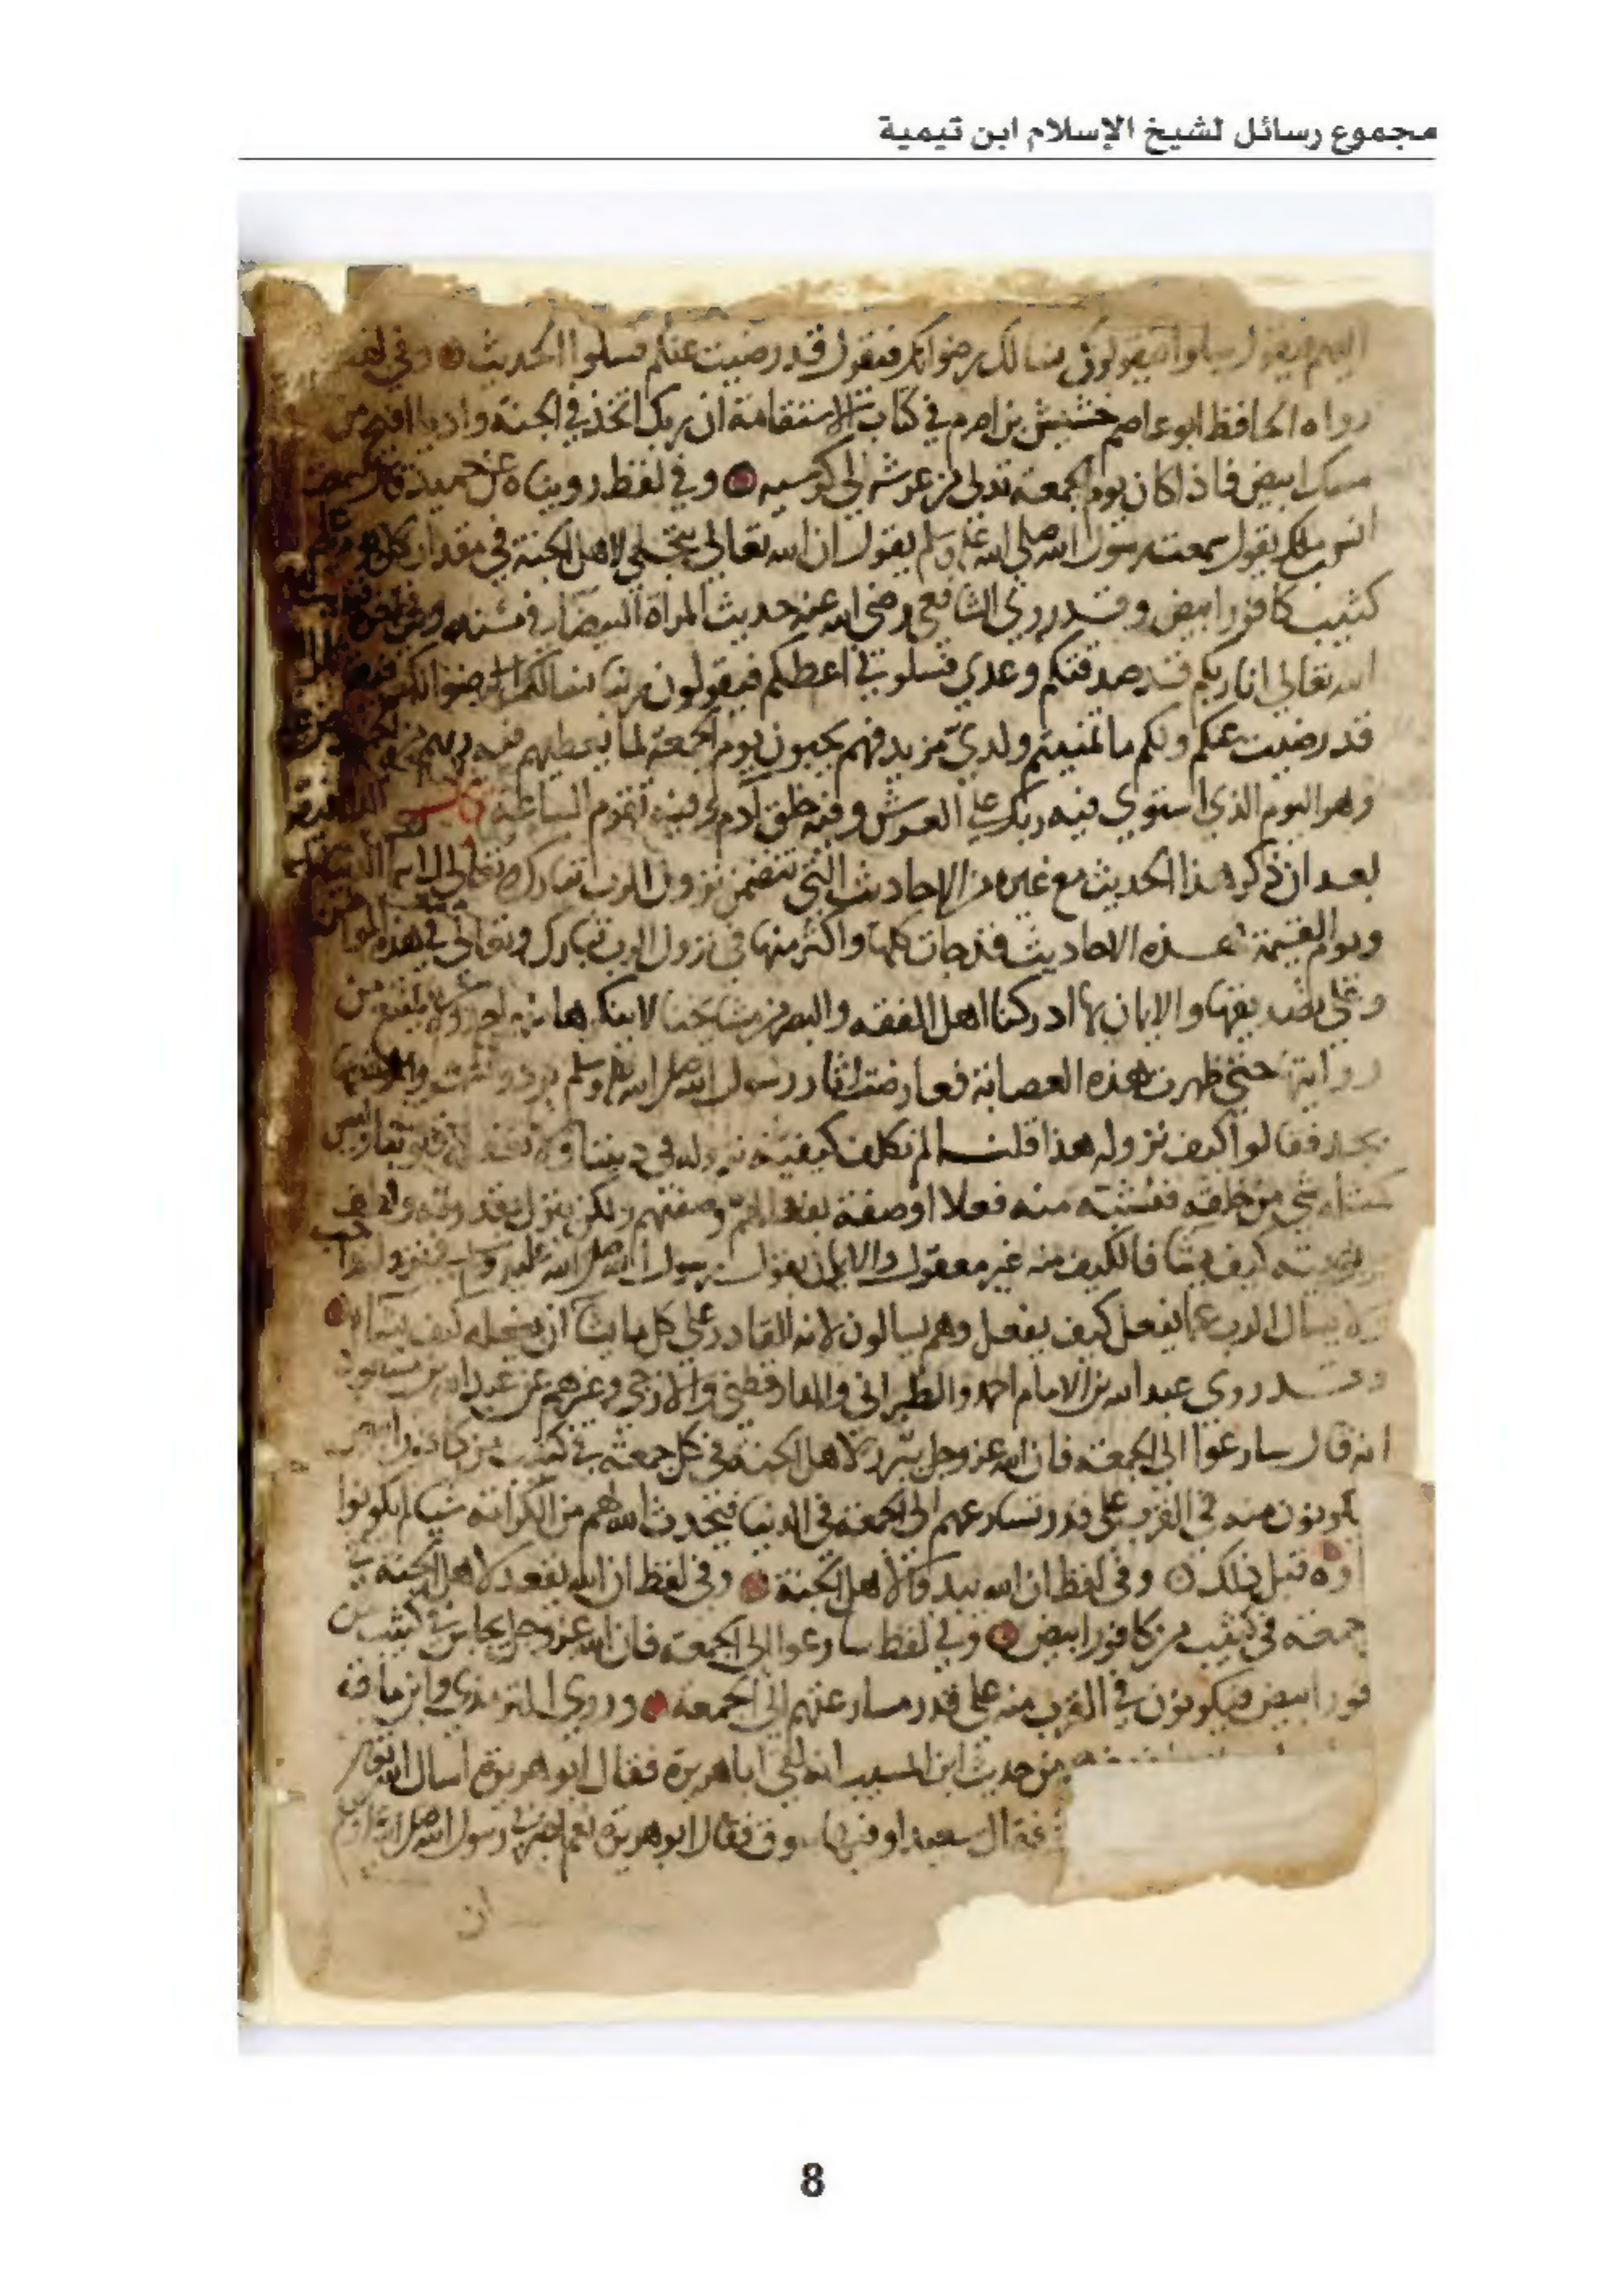 مجموع رسائل لشيخ الإسلام ابن تيمية
اليهم فيقول سلوا فيقولون نسالك رضوانك فيقول قد رضيت عنكم فسلوا الحديث وفي لفظ
رواه الحافظ ابو عاصم خشيش بن اصرم في كتاب الاستقامة ان ربك اتخذ في الجنة واديا افيح من
مسك ابيض فاذا كان يوم الجمعة تدلى من عرشه الى كرسيه وفي لفظ رويناه عن حميد قال سمعت
انس بن ملك يقول سمعت رسول الله صلى الله عليه وسلم يقول ان الله تعالى يتجلى لاهل الجنة في مقدار كل يوم على
كثيب كافور ابيض وقد روى الشافعي رضي الله عنه حديث المراة البيضا في مسنده
الله تعالى انا ربكم قد صدقتكم وعدي فسلوني اعطكم فيقولون ربنا نسالك رضوانك
قد رضيت عنكم ولكم ما تمنيتم ولدي مزيد فهم يحبون يوم الجمعة لما يعطيهم فيه ربهم من الخير
وهو اليوم الذي استوى فيه ربك على العرش وفيه خلق آدم وفيه تقوم الساعة
بعد ان ذكر هذا الحديث مع غيره من الاحاديث التي تتضمن نزول الرب تبارك وتعالى
ويوم القيمة هذه الاحاديث قد جات كلها واكثر منها في نزول الرب تبارك وتعالى في هذه المواطن
وعلى تصديقها والايمان بها ادركنا اهل الفقه والبصر من مشايخنا لا ينكرها منهم احد ولا يمتنع من
روايتها حتى ظهرت هذه العصابة فعارضت اثار رسول الله صلى الله عليه وسلم برد
فقالوا كيف نزوله هذا قلنا لم نكلف كيفية نزوله في ديننا ولا تعقله قلوبنا وليس
كمثله شي من خلقه فنشبه منه فعلا او صفة بفعالهم وصفتهم ولكن ينزل بقدرته
كيف يشا فالكيف منه غير معقول والايمان بقول رسول الله صلى الله عليه وسلم في نزوله واجب
ولا يسال الرب عما يفعل كيف يفعل وهم يسالون لانه القادر على كل ما يشا ان يفعله كيف يشا
وقد روى عبد الله بن الامام احمد والطبراني والدارقطني والازجي وغيرهم عن عبد الله بن مسعود
انه قال سارعوا الى الجمعة فان الله عز وجل يبرز لاهل الجنة في كل جمعة في كثيب من كافور ابيض
يكونون منه في القرب على قدر تسارعهم الى الجمعة في الدنيا فيحدث الله لهم من الكرامة شيا لم يكونوا
راوه قبل ذلك وفي لفظ ان الله يبدوا لاهل الجنة وفي لفظ ان الله يقعد لاهل الجنة في
جمعة في كثيب من كافور ابيض وفي لفظ سارعوا الى الجمعة فان الله عز وجل يجالس في كثيب من
فور ابيض فيكونون في القرب منه على قدر مسارعتهم الى الجمعة وروى الترمذي وابن ماجة
من حديث ابن المسيب انه لقي ابا هريرة فقال ابو هريرة اسال الله
فقال سعيد او فيها سوق فقال ابو هريرة نعم اخبرني رسول الله صلى الله عليه وسلم
ان
8